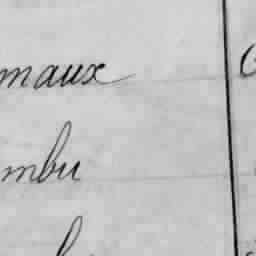 maux
mbu